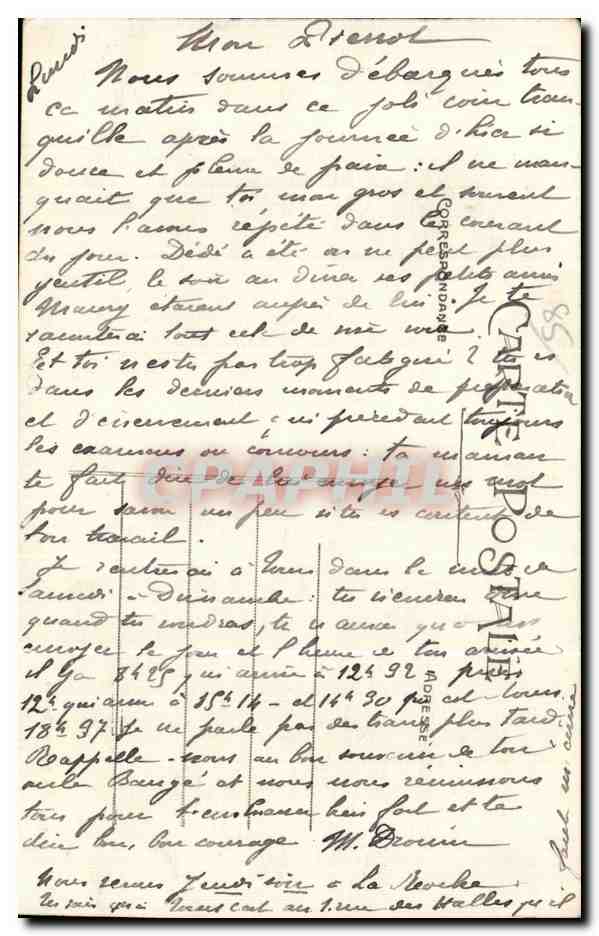 Lundi
Mon Pierrot
Nous sommes débarqués tous
ce matin dans ce joli coin tran-
quille après la journée d'hier si
douce et pleine de paix : il ne man-
quait que toi mon gros et souvent
nous l'avons répété dans le courant
du jour. Dédé a été on ne peut plus
gentil, le soir au dîner ses petits amis
étaient auprès de lui. Je te
raconterai tout cela de vive voix.
Et toi n'es tu pas trop fatigué ? tu es
dans les derniers moments de préparation
et d' qui précèdent toujours
les examens ou concours : ta maman
te fait dire de lui envoyer un mot
pour savoir un peu si tu es content de
ton travail.
Je rentrerai à Tours dans la nuit de
Samedi à Dimanche : tu viendras
quand tu voudras, tu n'auras qu'à nous
envoyer le jour et l'heure de ton arrivée
il y a 8h25 qui arrive à 12h92 puis
12h qui arrive à 15h14 - et 14h30 qui est à Tours
18h37. Je ne parle pas des trains plus tard.
Rappelle-nous au bon souvenir de ton
oncle Baugé et nous nous réunissons
tous pour t'embrasser bien fort et te
dire bon, bon courage M. Drouin
Nous serons Jeudi soir à La
Tu sais qu'à Tours c'est au 1 rue des Halles qu'il
faut m'écrire
CORRESPONDANCE
CARTE POSTALE
ADRESSE
98
CPAPHIL